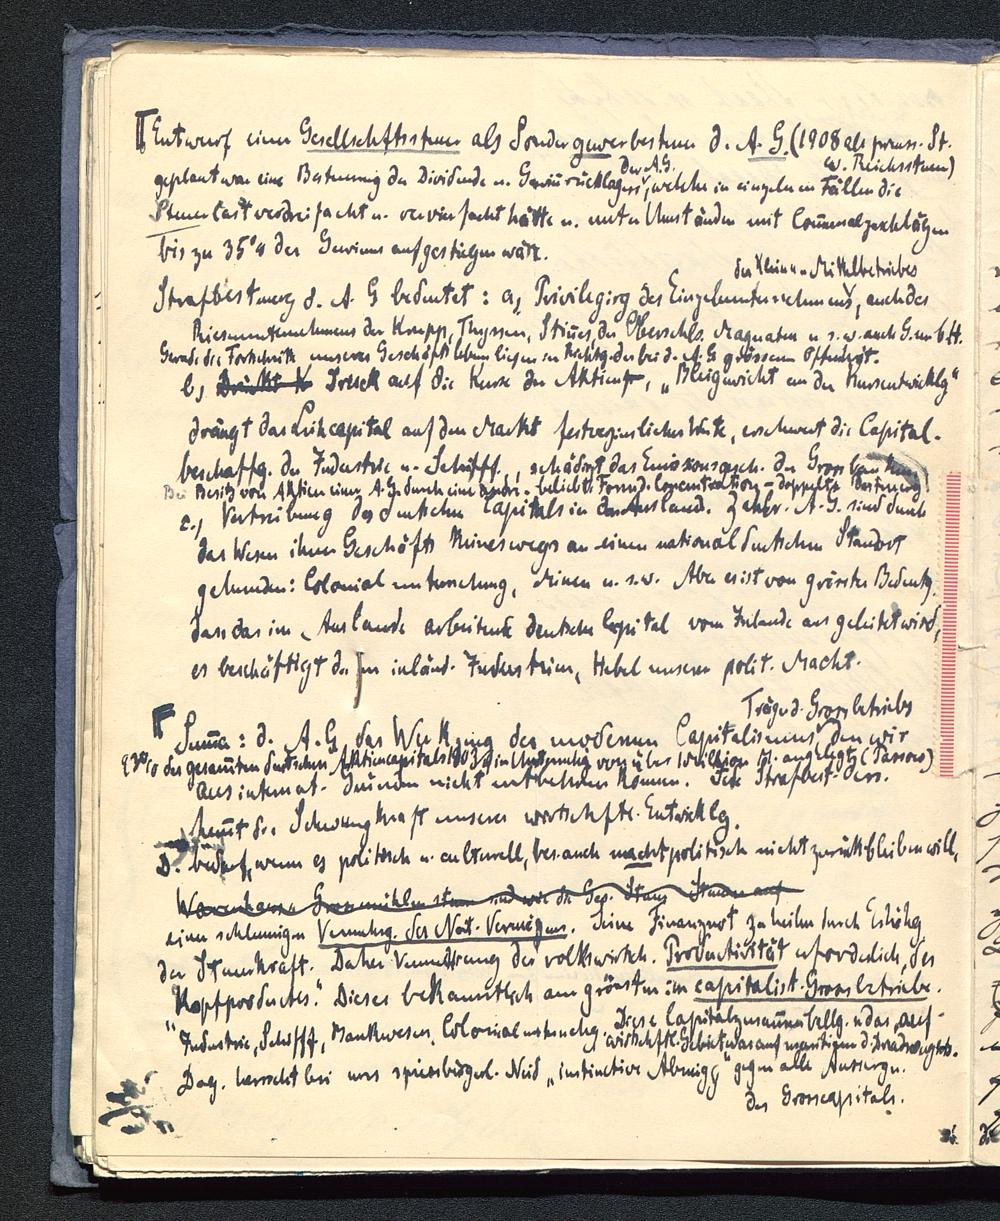 Entwurf einer Gesellschaftssteuer als Sondergewerbesteuer d. A. G. (1908 als preuss. St.
der A.G. w. Reichssteuer)
geplant war eine Besteuerung der Dividende u. Gewinnrücklagen, welche in einzelnen Fällen die
Steuerlast verdreifacht u. vervierfacht hätte u. unter Umständen mit Communalzuschlägen
bis zu 35% des Gewinns aufgestiegen wäre.
der Klein u. Mittelbetriebes
Strafbesteuerg d. A. G bedeutet: a, Privilegirg des Einzelunternehmens, auch des
Riesenunternehmens der Krupp, Thyssen, Stinnes, der Oberschls. Magnaten u. s. w. auch G. m. b. H.
Gerade die Fortschritte unseres Geschäftslebens liegen in Richtg. der bei d. A. G grösseren Öffentlgt.
b, Druck auf die Kurse der Aktien, „Bleigewicht an der Kursentwicklg"
drängt das Leihcapital auf den Markt festverzinslicher Werte, erschwert die Capital-
beschaffg. der Industrie u. Schifff., schädigt das Emissionsgesch. der Grossbanken
Bei Besitz von Aktien einer A.G. durch eine andre - beliebte Form d. Concentration - doppelte Besteuerg
c., Vertreibung des deutschen Capitals in das Ausland. Zahlr. A. G. sind durch
das Wesen ihrer Geschäfts keineswegs an einen national deutschen Standort
gebunden: Colonialunternehmung, Minen u. s. w. Aber es ist von grösster Bedeutg.
dass das im Auslande arbeitende deutsche Capital vom Inlande aus geleitet wird,
es beschäftigt dann inländ. Industrien, Hebel unserer polit. Macht.
Träger d. Grossbetriebs
Summa: d. A. G das Werkzeug des modernen Capitalismus, den wir
93% des gesamten deutschen Aktiencapitals 1903 in Unternehmg von über 1 Million M. angelegt (Passow)
aus internat. Gründen nicht entbehren können. Jede Strafbest. ders.
hemmt die Schwungkraft unserer wirtschaftl. Entwicklg.
D. bedarf, wenn es politisch u. culturell, bes. auch machtpolitisch nicht zurückbleiben will,
Warenhaus Grossmühlensteuer sind wie die Ges. Steuer Steuern auf
einer schleunigen Vermehrg. des Nat. Vermögens. Seine Finanznot zu heilen durch Erhöhg
der Steuerkraft. Daher Vermehrung der volkswirtsch. Productivität erforderlich, des
„Kopfproductes." Dieses bekanntlich am grössten im capitalist. Grossbetriebe.
Diese Capitalzusammenballg. ist das, auf
„Industrie, Schifff, Bankwesen, Colonialunternehmg. wirtschaftl. Gebiet was auf maritimem d. Dreadnoughts.
Dag. herrscht bei uns spiessbürgerl. Neid „instinctive Abneigg" gegen alle Äussergn.
des Grosscapitals.